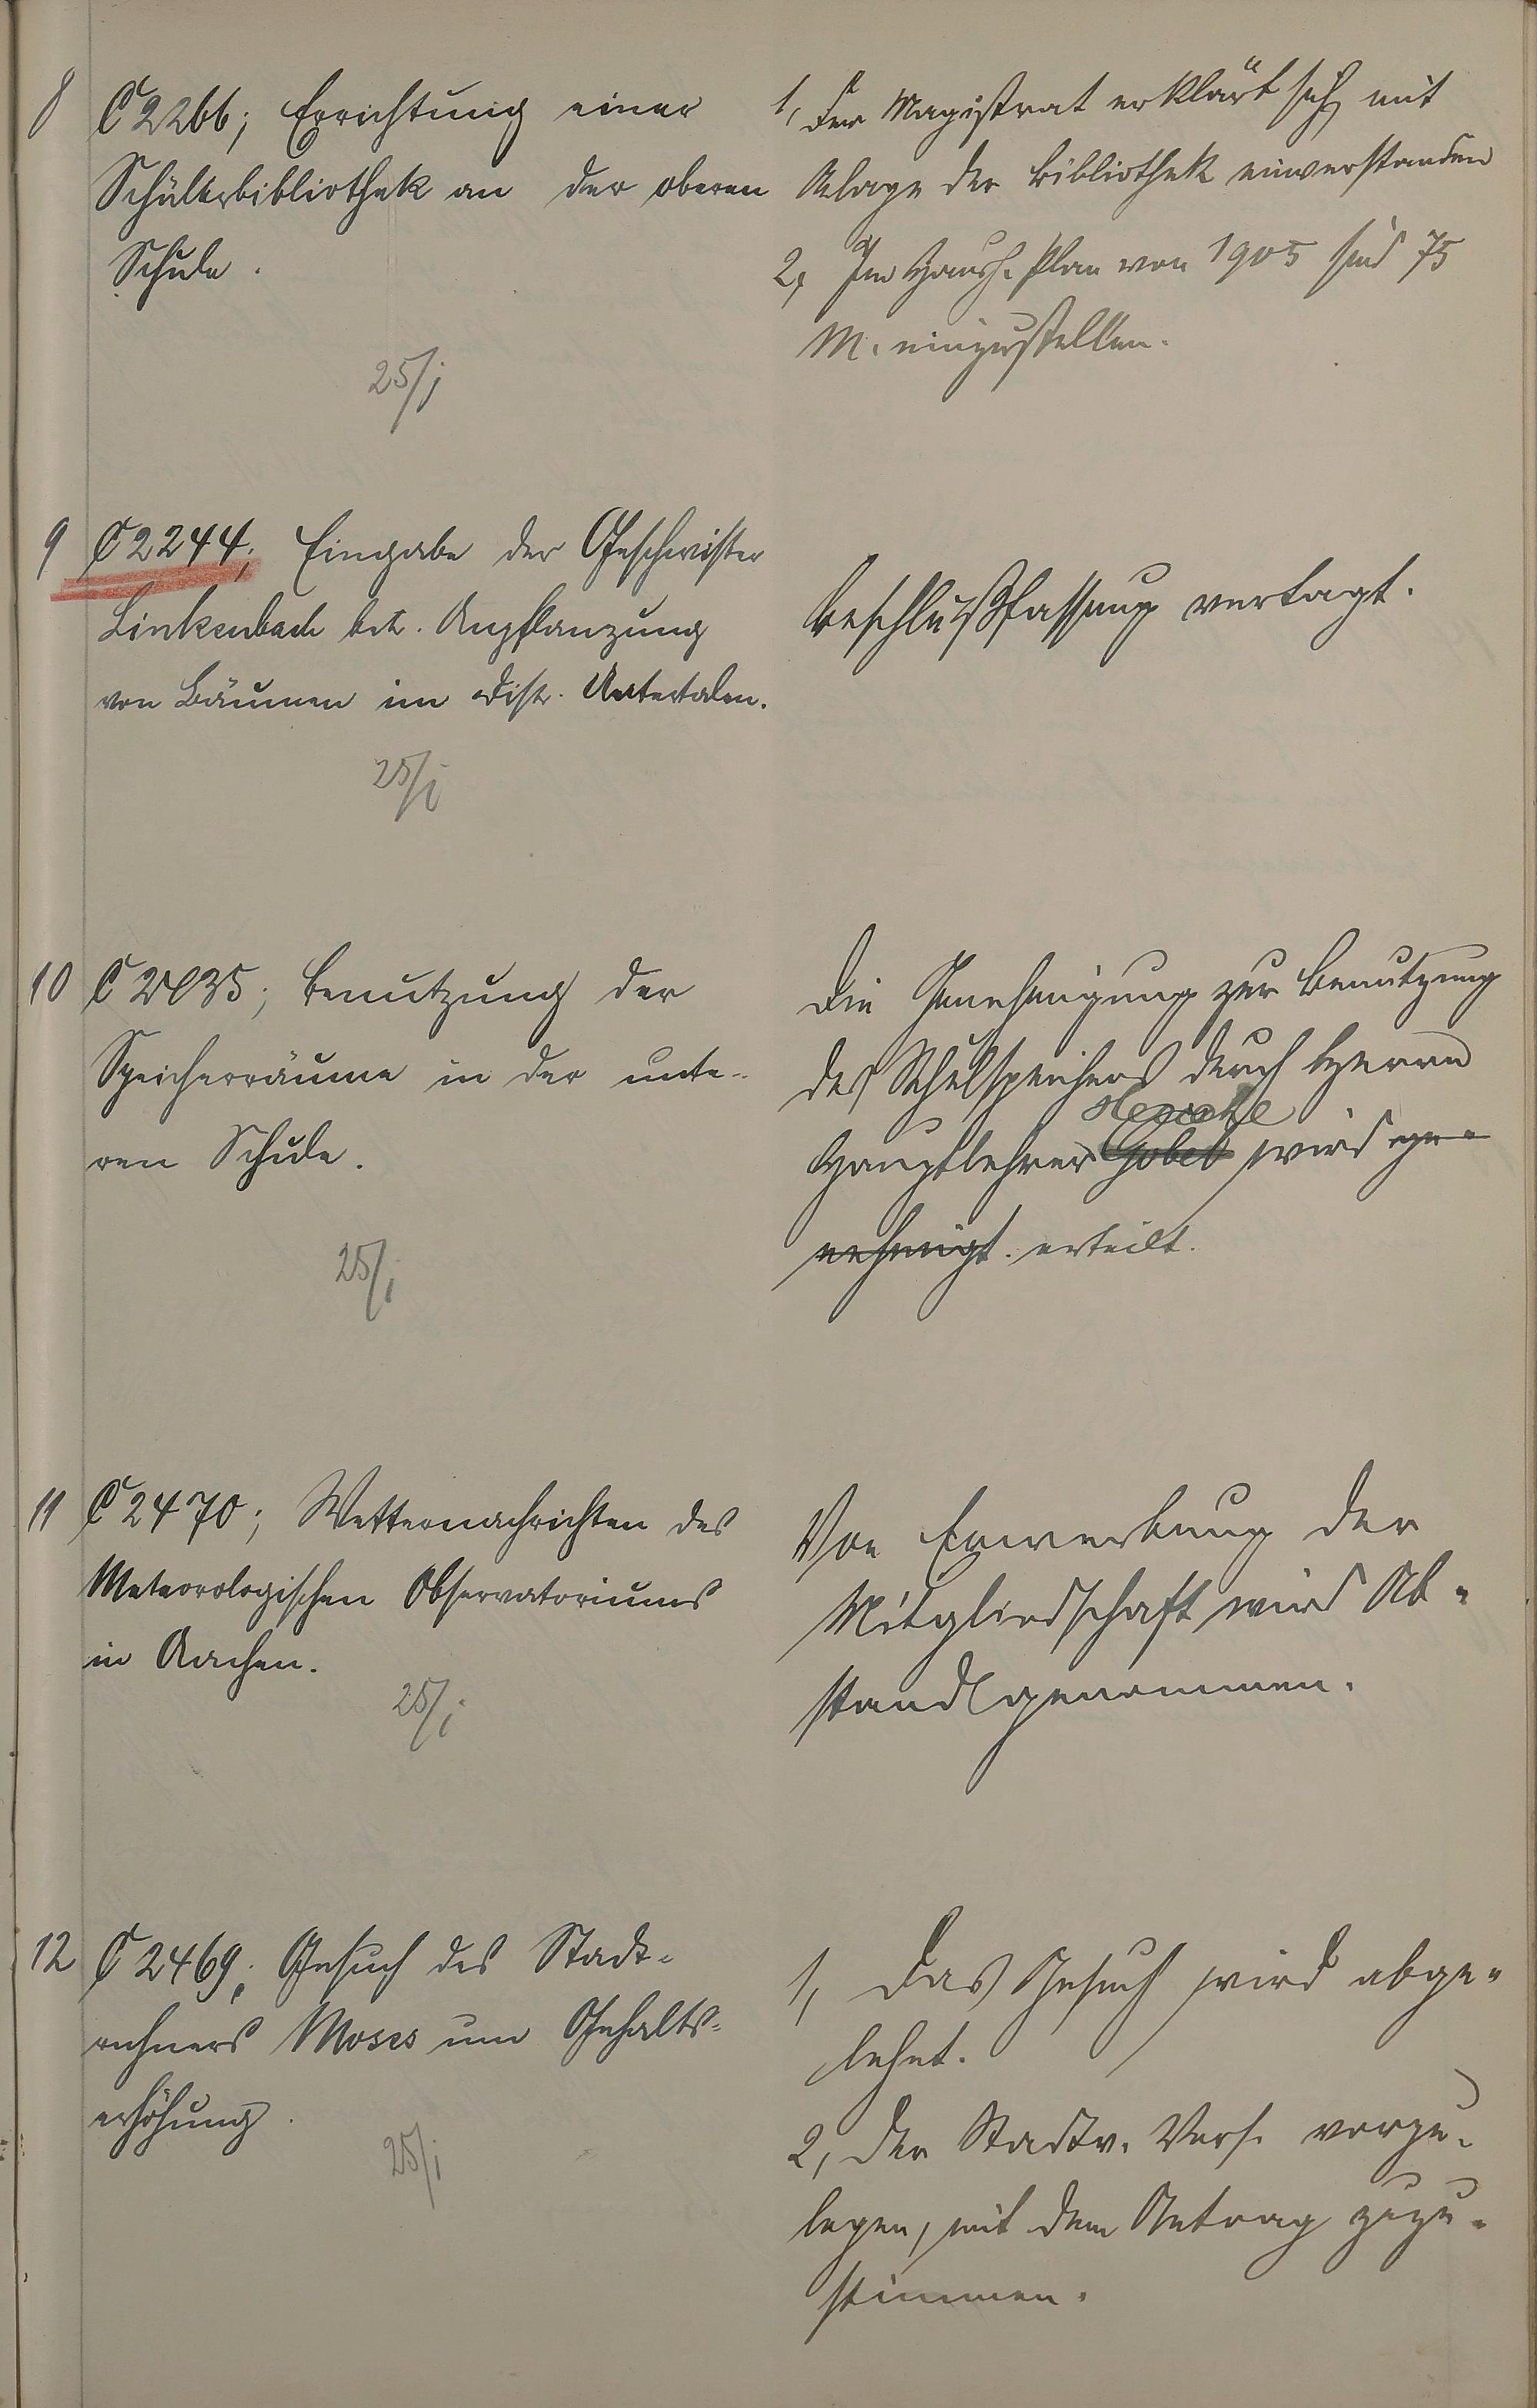 8
C 2266; Errichtung einer
Schülerbibliothek an der oberen
Schule.
25/i
1, Der Magistrat erklärt sich mit
Anlage der Bibliothek einverstanden
2, Im Haush. Plan von 1905 sind 75
M. einzustellen.
9
C 2244; Eingabe der Geschwister
Linkenbach btr. Anpflanzung
von Bäumen im Distr. Untertalen.
25/i
Beschlußfassung vertagt.
10
C 2035; Benutzung der
Speicherräume in der unte-
ren Schule.
25/i
Die Genehmigung zur Benutzung
des Schulspeichers durch Herrn
Hauptlehrer Gobel wird ge-
nehmigt. erteilt.
11
C 2470; Wetternachrichten des
Meteorologischen Observatoriums
in Aachen.
25/i
Von Erwerbung der
Mitgliedschaft wird Ab-
stand genommen.
12
C 2469; Gesuch des Stadt-
rechners Moses um Gehalts-
erhöhung.
25/i
1, Das Gesuch wird abge-
lehnt.
2, Der Stadtv. Vers. vorzu-
legen, mit dem Antrag zuzu-
stimmen.